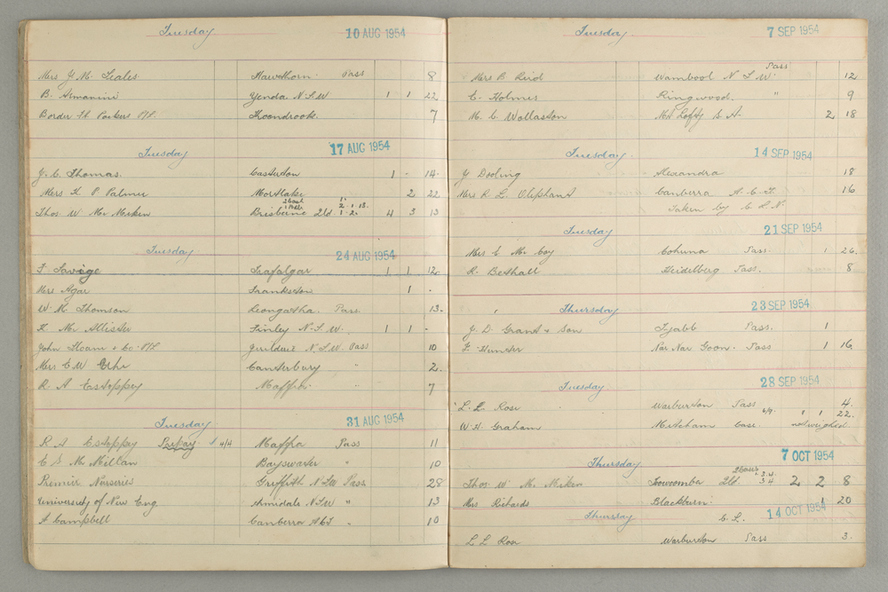 Tuesday 10 AUG 1954
Mrs J. M. Scales Hawthorn Pass 8
B. Armanini Yenda N.S.W 1 1 22
Border Packers P/L. Koondrook. 7
Tuesday 17 AUG 1954
J. C. Thomas. Casterton 1 - 14.
Mrs H P Palmer Mortlake 2 22
Thos W Mc Meeken Brisbane Qld 4 3 13
Tuesday 24 AUG 1954
F Savige Trafalgar 1 1 12.
Mrs Agar Frankston 1 -
W. K Thomson Leongatha Pass 13.
K. Mc Allister Finley N.S.W. 1 1 -
John Sloan & Co P/L. N.S.W Pass 10
Mrs C W Canterbury " 2.
R. A Estoppey Maffra. " 7
Tuesday 31 AUG 1954
R A Estoppey 4/4 Maffra Pass 11
C S Mc Millan Bayswater " 10
Premier Nurseries Griffith N.S.W Pass 28
University of New Eng Armidale N.S.W " 13
A Campbell Canberra ACT " 10
Tuesday 7 SEP 1954
Mrs B Reid Wambool N S W. Pass 12
C. Holmes Ringwood. " 9
M. C Wollaston Mt Lofty S A. 2 18
Tuesday 14 SEP 1954
J Dooling Alexandra 18
Mrs R L Oliphant Canberra A.C.T. 16
Taken by
Tuesday 21 SEP 1954
Mrs E Mc Coy Cohuna Pass 1 26.
R. Bethall Heidelberg Pass. 8
Thursday 23 SEP 1954
J. D. Grant & Son Tyabb Pass. 1
F. Hunter Nar Nar Goon. Pass 1 16.
Tuesday 28 SEP 1954
L. L. Rose Warburton Pass 4.
W. H Graham Mitcham Case. 1 1 22.
not weighed
Thursday 7 OCT 1954
Thos W Mc Meeken Toowoomba Qld 2 2 8
Mrs Richards Blackburn. 1 20
Thursday 14 OCT 1954
L L Rose Warburton Pass 3.